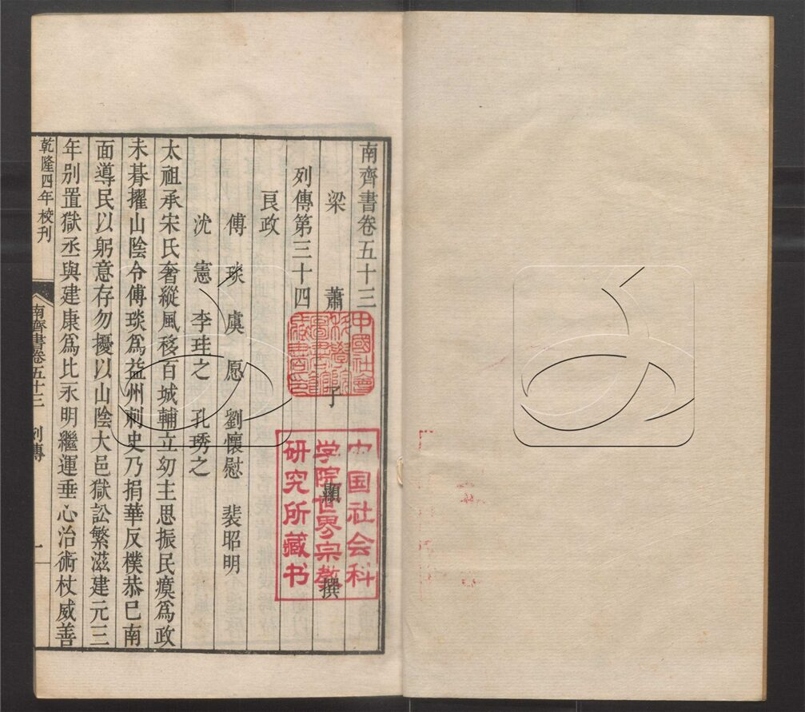 南齊書卷五十三
梁 蕭 子 顯 撰
列傳第三十四
良政
傅琰 虞愿 劉懷慰 裴昭明
沈憲 李珪之 孔琇之
太祖承宋氏奢縱風移百城輔立幼主思振民瘼爲政
未朞擢山陰令傅琰爲益州刺史乃捐華反樸恭已南
面導民以躬意存勿擾以山陰大邑獄訟繁滋建元三
年別置獄丞與建康爲比永明繼運垂心治術杖威善
乾隆四年校刊
南齊書卷五十三 列傳 一
中國社會
科學院
圖書館
藏書印
中国社会科
学院世界宗教
研究所藏书